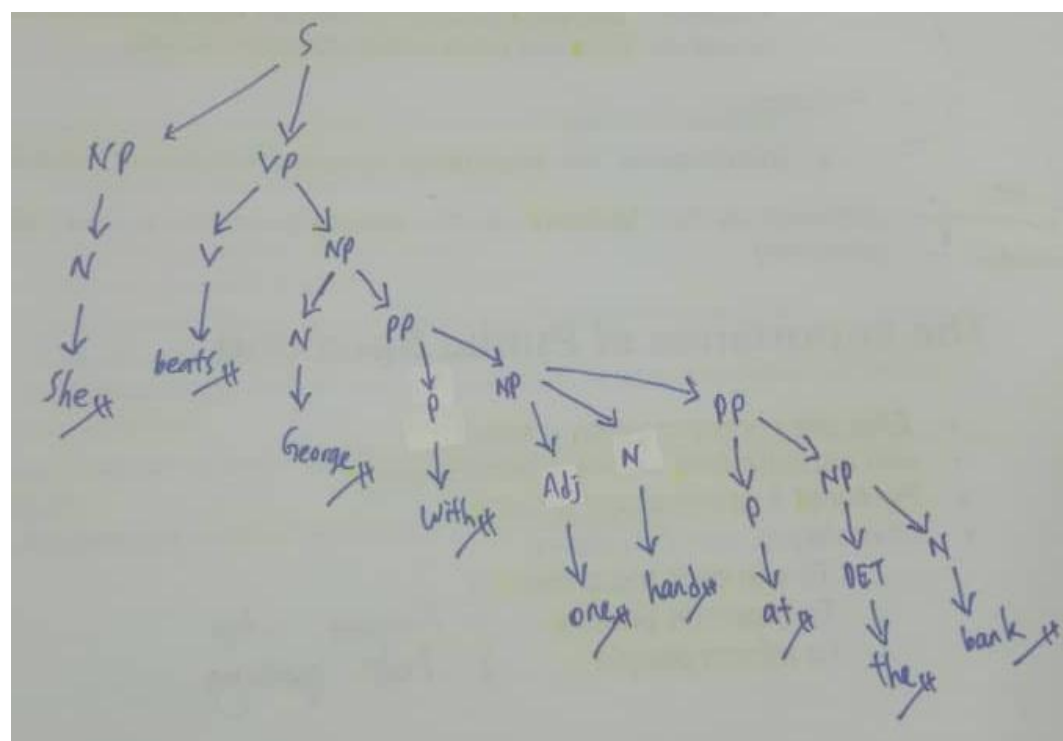 S
NP VP
N V NP
She beats N PP
George P NP
with Adj N PP
one hand P NP
at DET N
the bank
The Importance of